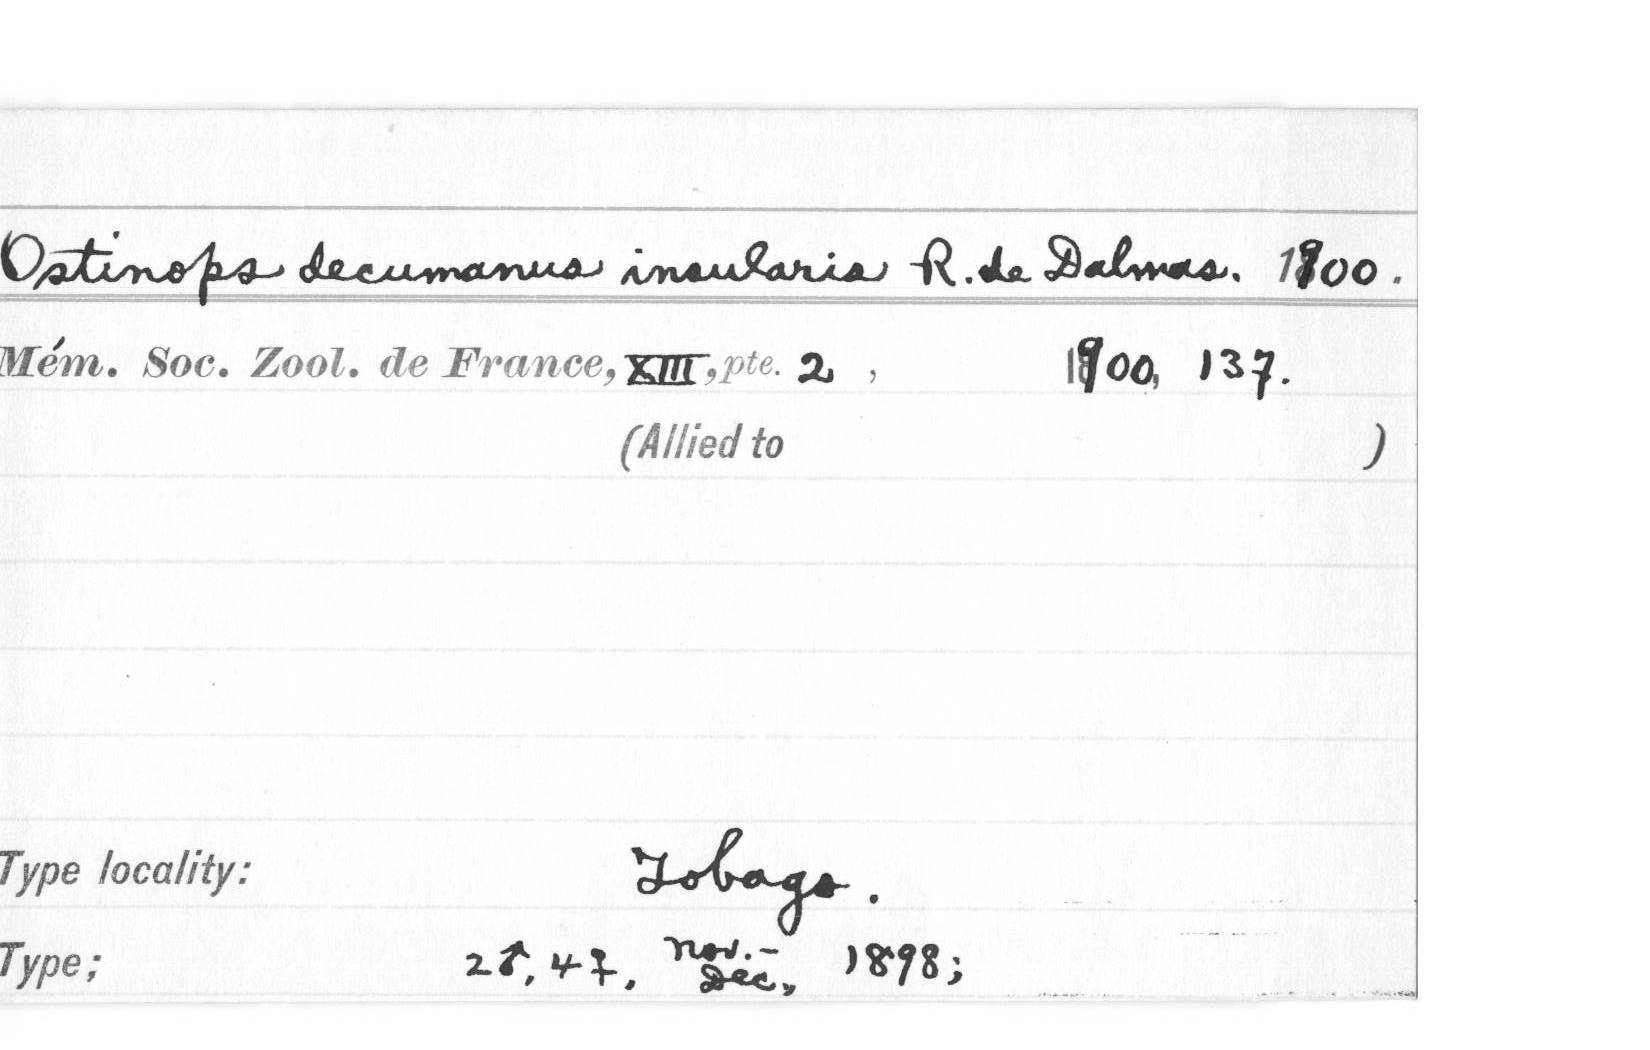 Ostinops decumanus insularis R. de Dalmas. 1900.
Mém. Soc. Zool. de France, XIII, pte. 2, 1900, 137.
(Allied to )
Type locality: Tobago.
Type; 2♂, 4♀, Nov.-Dec., 1898;